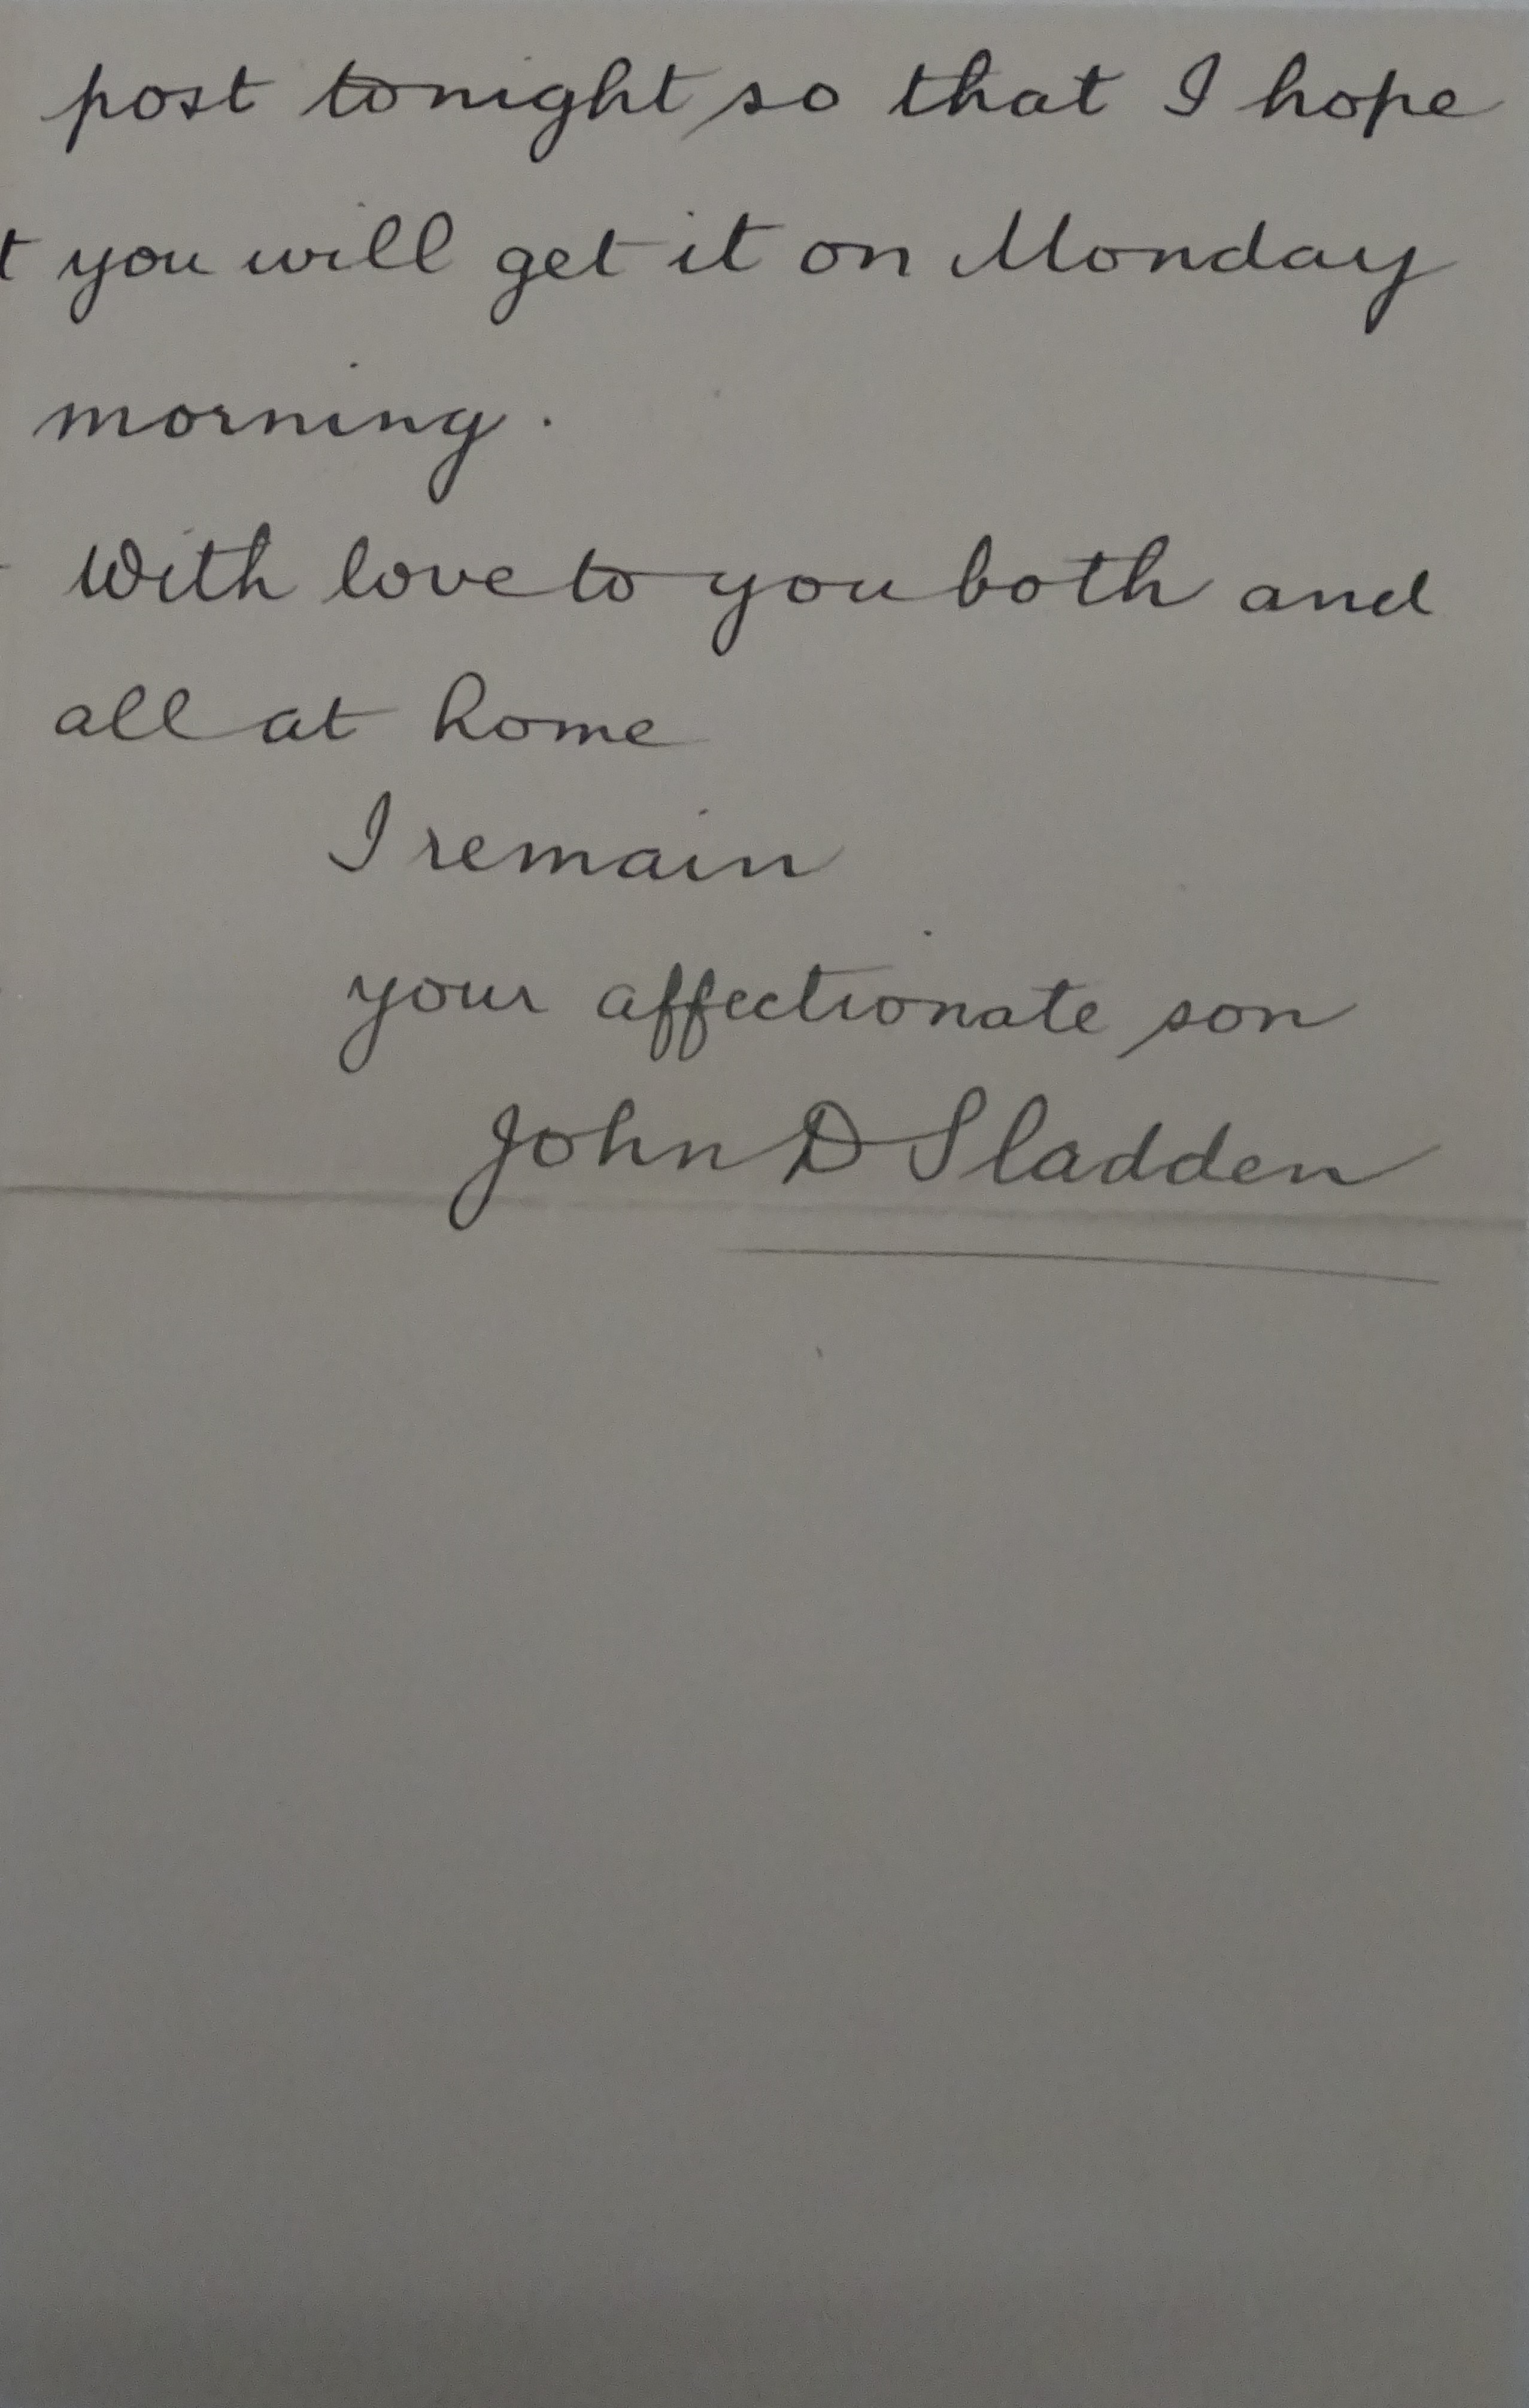 post tonight so that I hope
you will get it on Monday
morning.
With love to you both and
all at home
I remain
your affectionate son
John D Sladden